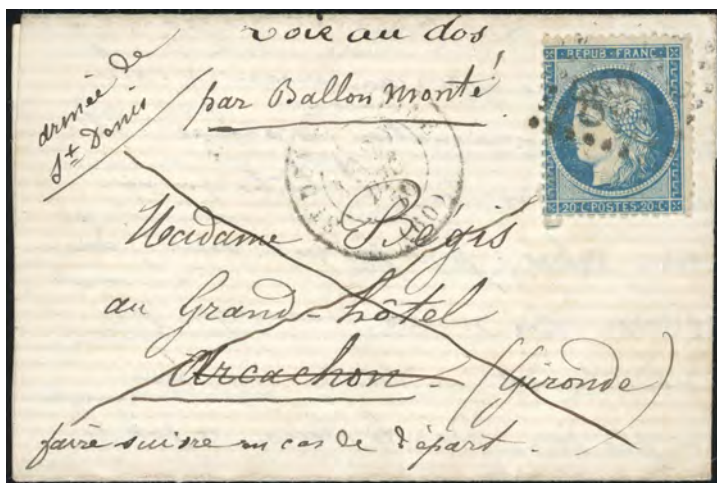 voir au dos
armée de
St Denis
par Ballon monté
REPUB. FRANC.
20 C POSTES 20 C
(60)
Madame Régis
au Grand-hôtel
Arcachon - (Gironde)
faire suivre en cas de départ.